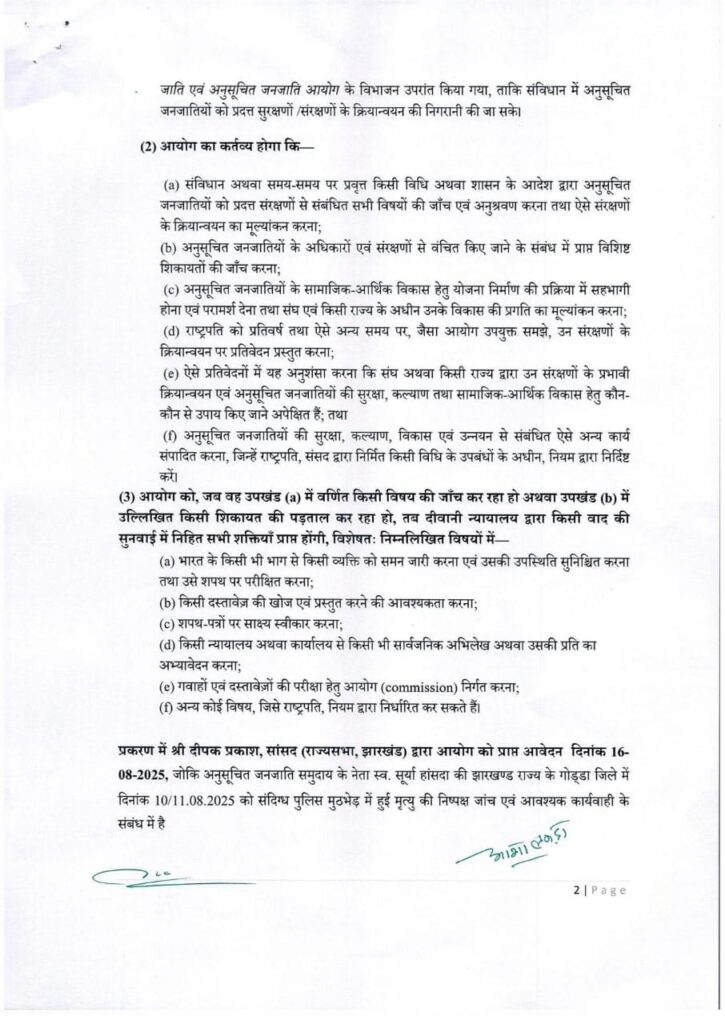 जाति एवं अनुसूचित जनजाति आयोग के विभाजन उपरांत किया गया, ताकि संविधान में अनुसूचित
जनजातियों को प्रदत्त सुरक्षणों /संरक्षणों के क्रियान्वयन की निगरानी की जा सके।
(2) आयोग का कर्तव्य होगा कि—
(a) संविधान अथवा समय-समय पर प्रवृत्त किसी विधि अथवा शासन के आदेश द्वारा अनुसूचित
जनजातियों को प्रदत्त संरक्षणों से संबंधित सभी विषयों की जाँच एवं अनुश्रवण करना तथा ऐसे संरक्षणों
के क्रियान्वयन का मूल्यांकन करना;
(b) अनुसूचित जनजातियों के अधिकारों एवं संरक्षणों से वंचित किए जाने के संबंध में प्राप्त विशिष्ट
शिकायतों की जाँच करना;
(c) अनुसूचित जनजातियों के सामाजिक-आर्थिक विकास हेतु योजना निर्माण की प्रक्रिया में सहभागी
होना एवं परामर्श देना तथा संघ एवं किसी राज्य के अधीन उनके विकास की प्रगति का मूल्यांकन करना;
(d) राष्ट्रपति को प्रतिवर्ष तथा ऐसे अन्य समय पर, जैसा आयोग उपयुक्त समझे, उन संरक्षणों के
क्रियान्वयन पर प्रतिवेदन प्रस्तुत करना;
(e) ऐसे प्रतिवेदनों में यह अनुशंसा करना कि संघ अथवा किसी राज्य द्वारा उन संरक्षणों के प्रभावी
क्रियान्वयन एवं अनुसूचित जनजातियों की सुरक्षा, कल्याण तथा सामाजिक-आर्थिक विकास हेतु कौन-
कौन से उपाय किए जाने अपेक्षित हैं; तथा
(f) अनुसूचित जनजातियों की सुरक्षा, कल्याण, विकास एवं उन्नयन से संबंधित ऐसे अन्य कार्य
संपादित करना, जिन्हें राष्ट्रपति, संसद द्वारा निर्मित किसी विधि के उपबंधों के अधीन, नियम द्वारा निर्दिष्ट
करें।
(3) आयोग को, जब वह उपखंड (a) में वर्णित किसी विषय की जाँच कर रहा हो अथवा उपखंड (b) में
उल्लिखित किसी शिकायत की पड़ताल कर रहा हो, तब दीवानी न्यायालय द्वारा किसी वाद की
सुनवाई में निहित सभी शक्तियाँ प्राप्त होंगी, विशेषतः निम्नलिखित विषयों में—
(a) भारत के किसी भी भाग से किसी व्यक्ति को समन जारी करना एवं उसकी उपस्थिति सुनिश्चित करना
तथा उसे शपथ पर परीक्षित करना;
(b) किसी दस्तावेज़ की खोज एवं प्रस्तुत करने की आवश्यकता करना;
(c) शपथ-पत्रों पर साक्ष्य स्वीकार करना;
(d) किसी न्यायालय अथवा कार्यालय से किसी भी सार्वजनिक अभिलेख अथवा उसकी प्रति का
अभ्यावेदन करना;
(e) गवाहों एवं दस्तावेज़ों की परीक्षा हेतु आयोग (commission) निर्गत करना;
(f) अन्य कोई विषय, जिसे राष्ट्रपति, नियम द्वारा निर्धारित कर सकते हैं।
प्रकरण में श्री दीपक प्रकाश, सांसद (राज्यसभा, झारखंड) द्वारा आयोग को प्राप्त आवेदन दिनांक 16-
08-2025, जोकि अनुसूचित जनजाति समुदाय के नेता स्व. सूर्या हांसदा की झारखण्ड राज्य के गोड्डा जिले में
दिनांक 10/11.08.2025 को संदिग्ध पुलिस मुठभेड़ में हुई मृत्यु की निष्पक्ष जांच एवं आवश्यक कार्यवाही के
संबंध में है
2 | Page